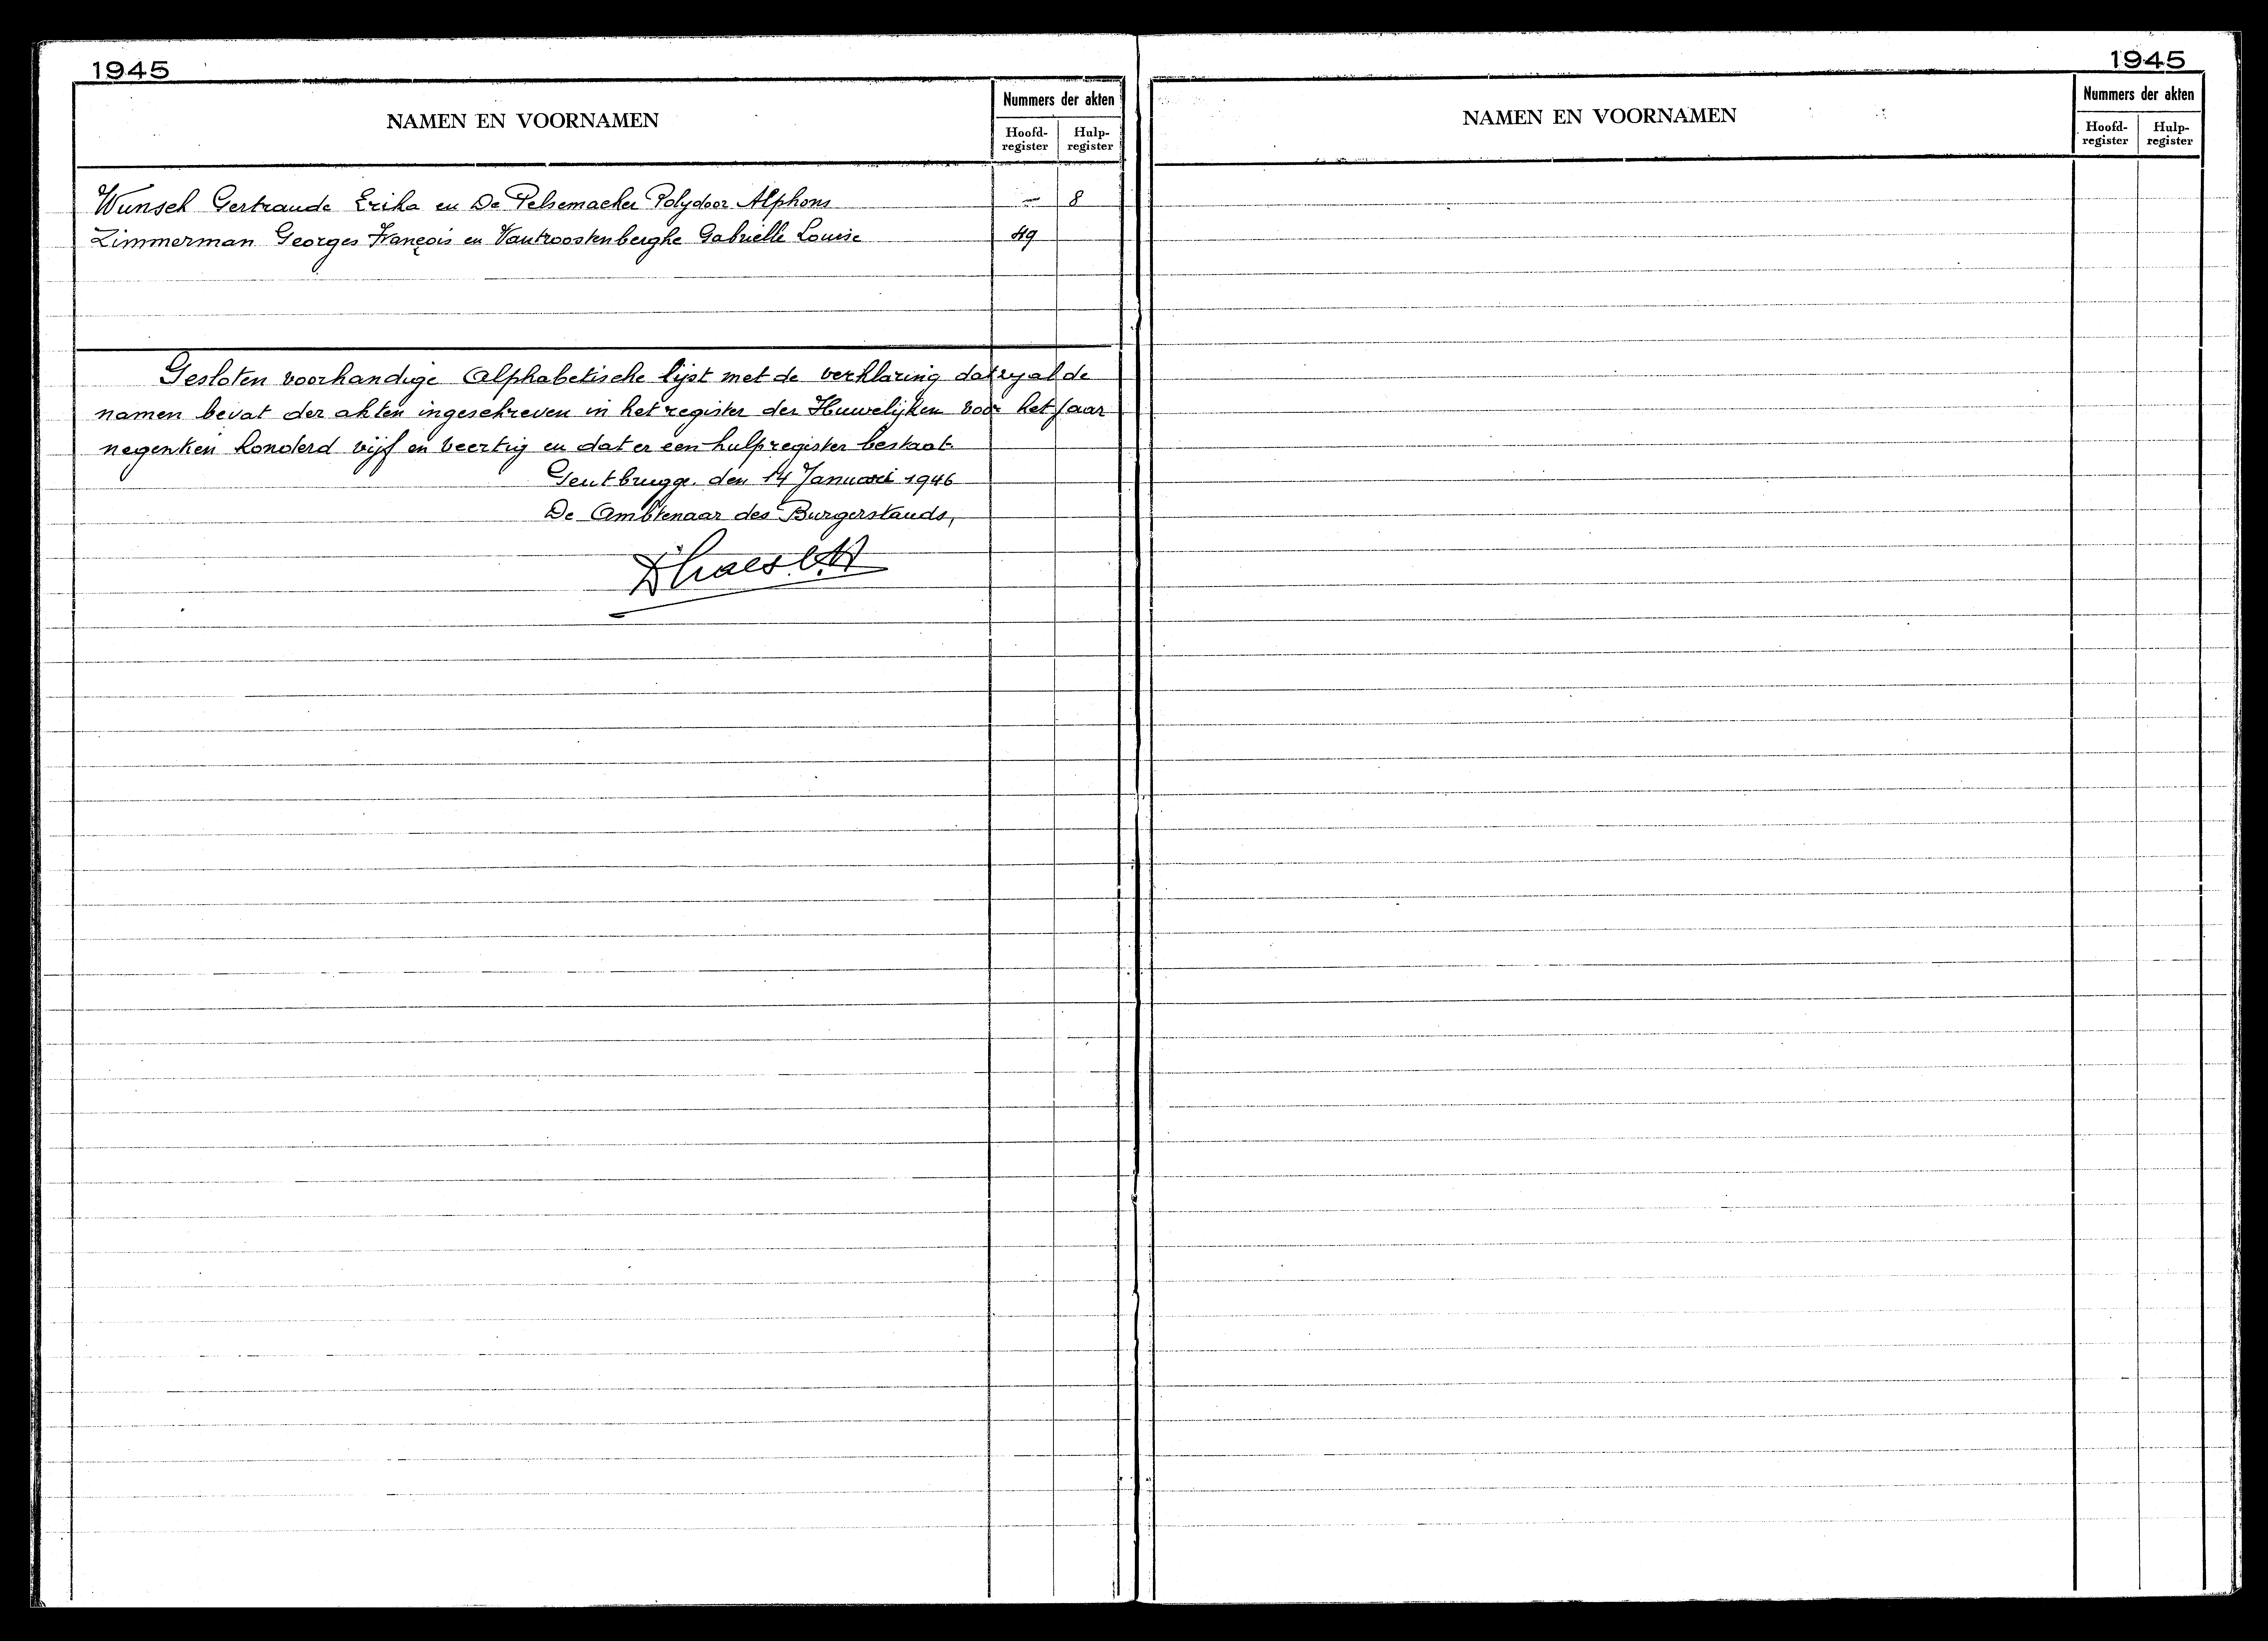 1945
NAMEN EN VOORNAMEN
Nummers der akten
Hoofd-
register
Hulp-
register
Wunsch Gertraude Erika en De Pelsemacker Polydoor Alphons — 8
Zimmerman Georges François en Vantroostenberghe Gabriëlle Louise 49
Gesloten voorhandige Alphabetische lijst met de verklaring dat zij al de
namen bevat der akten ingeschreven in het register der Huwelijken voor het jaar
negentien honderd vijf en veertig en dat er een hulpregister bestaat.
Gentbrugge, den 14 Januari 1946
De Ambtenaar des Burgerstands,
1945
NAMEN EN VOORNAMEN
Nummers der akten
Hoofd-
register
Hulp-
register